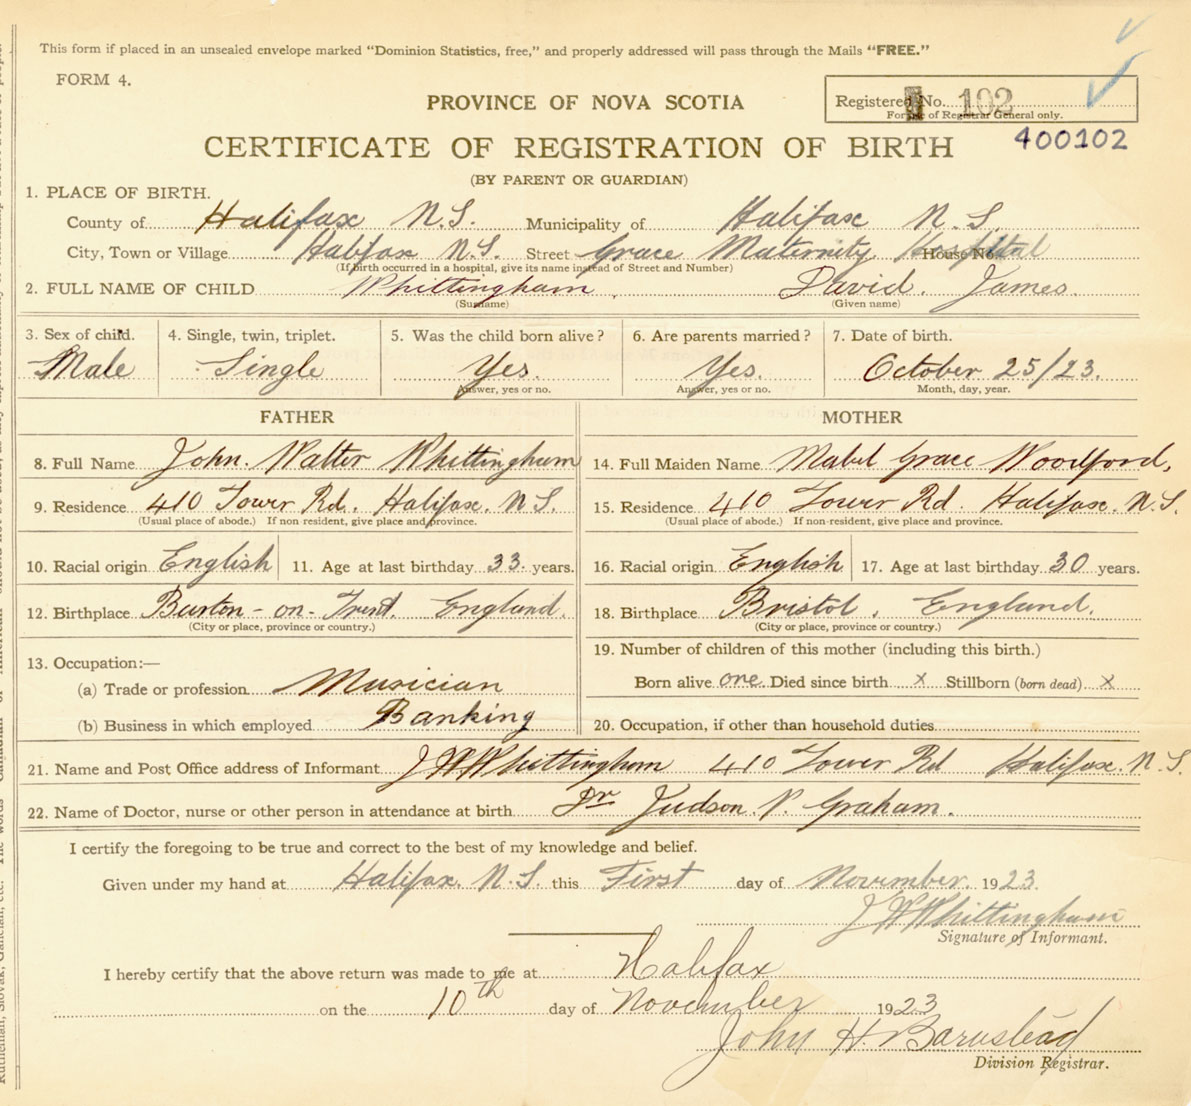 This form if placed in an unsealed envelope marked "Dominion Statistics, free," and properly addressed will pass through the Mails "FREE."
FORM 4.
PROVINCE OF NOVA SCOTIA
Registered No. 102
For use of Registrar General only.
CERTIFICATE OF REGISTRATION OF BIRTH
400102
(BY PARENT OR GUARDIAN)
1. PLACE OF BIRTH.
County of Halifax N.S. Municipality of Halifax N.S
City, Town or Village Halifax N.S. Street Grace Maternity Hospital House No.
(If birth occurred in a hospital, give its name instead of Street and Number)
2. FULL NAME OF CHILD Whittingham. David. James.
(Surname) (Given name)
3. Sex of child. 4. Single, twin, triplet. 5. Was the child born alive? 6. Are parents married? 7. Date of birth.
Male Single Yes. Yes. October 25/23.
Answer, yes or no. Answer, yes or no. Month, day, year.
FATHER MOTHER
8. Full Name John. Walter Whittingham 14. Full Maiden Name Mabel Grace Woodford,
9. Residence 410 Tower Rd. Halifax. N.S. 15. Residence 410 Tower Rd. Halifax. N.S.
(Usual place of abode.) If non resident, give place and province. (Usual place of abode.) If non-resident, give place and province.
10. Racial origin English 11. Age at last birthday 33. years. 16. Racial origin English 17. Age at last birthday 30 years.
12. Birthplace Burton-on-Trent. England. 18. Birthplace Bristol. England.
(City or place, province or country.) (City or place, province or country.)
13. Occupation:— 19. Number of children of this mother (including this birth.)
(a) Trade or profession Musician Born alive one. Died since birth x Stillborn (born dead) x
(b) Business in which employed Banking 20. Occupation, if other than household duties
21. Name and Post Office address of Informant J W Whittingham 410 Tower Rd Halifax. N.S.
22. Name of Doctor, nurse or other person in attendance at birth Dr Judson. V. Graham.
I certify the foregoing to be true and correct to the best of my knowledge and belief.
Given under my hand at Halifax. N.S. this First day of November. 1923.
J W Whittingham
Signature of Informant.
I hereby certify that the above return was made to me at Halifax
on the 10th day of November 1923
John H. Barnstead
Division Registrar.